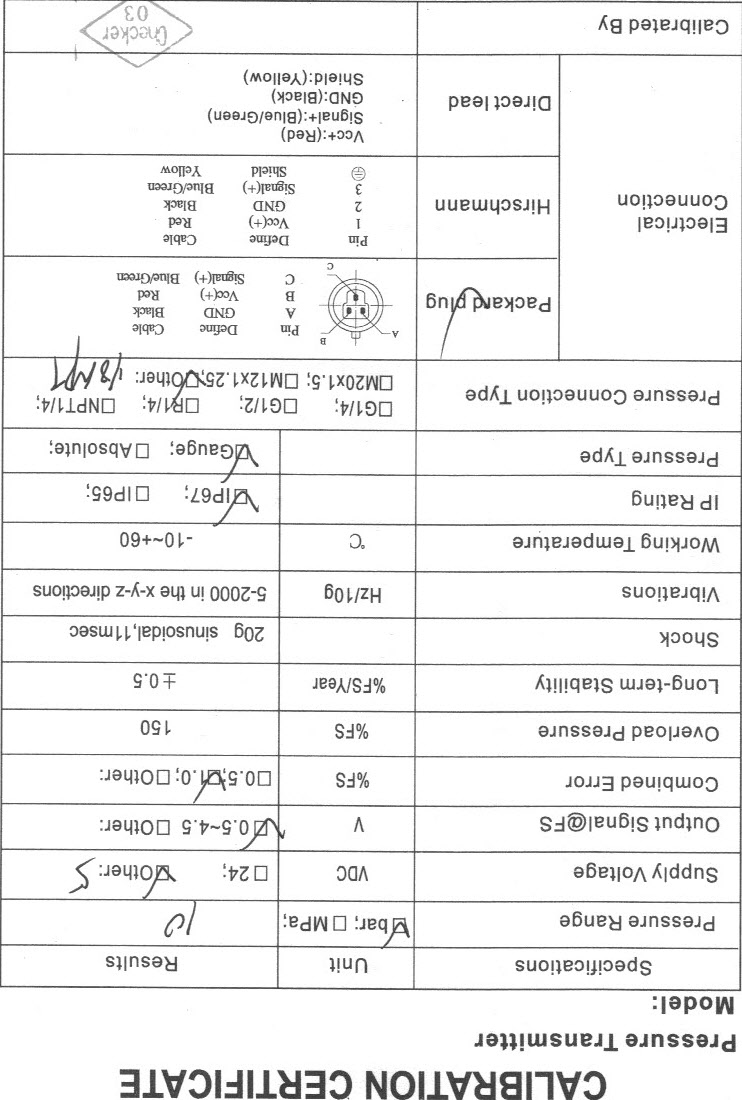 CALIBRATION CERTIFICATE
Pressure Transmitter
Model:
Specifications Unit Results
Pressure Range ☑ bar; ☐ MPa; 10
Supply Voltage VDC ☐ 24; ☑Other: 5
Output Signal@FS V ☑ 0.5~4.5 ☐Other:
Combined Error %FS ☐0.5; ☑1.0; ☐Other:
Overload Pressure %FS 150
Long-term Stability %FS/Year ±0.5
Shock 20g sinusoidal,11msec
Vibrations Hz/10g 5-2000 in the x-y-z directions
Working Temperature °C -10~+60
IP Rating ☑IP67; ☐IP65;
Pressure Type ☑Gauge; ☐Absolute;
Pressure Connection Type ☐G1/4; ☐G1/2; ☐R1/4; ☐NPT1/4;
☐M20x1.5; ☐M12x1.25; ☑Other: 1/8 NPT
Electrical Connection
Packard plug
A
B
C
Pin Define Cable
A GND Black
B Vcc(+) Red
C Signal(+) Blue/Green
Hirschmann
Pin Define Cable
1 Vcc(+) Red
2 GND Black
3 Signal(+) Blue/Green
⏚ Shield Yellow
Direct lead
Vcc+:(Red)
Signal+:(Blue/Green)
GND:(Black)
Shield:(Yellow)
Calibrated By
Checker
03